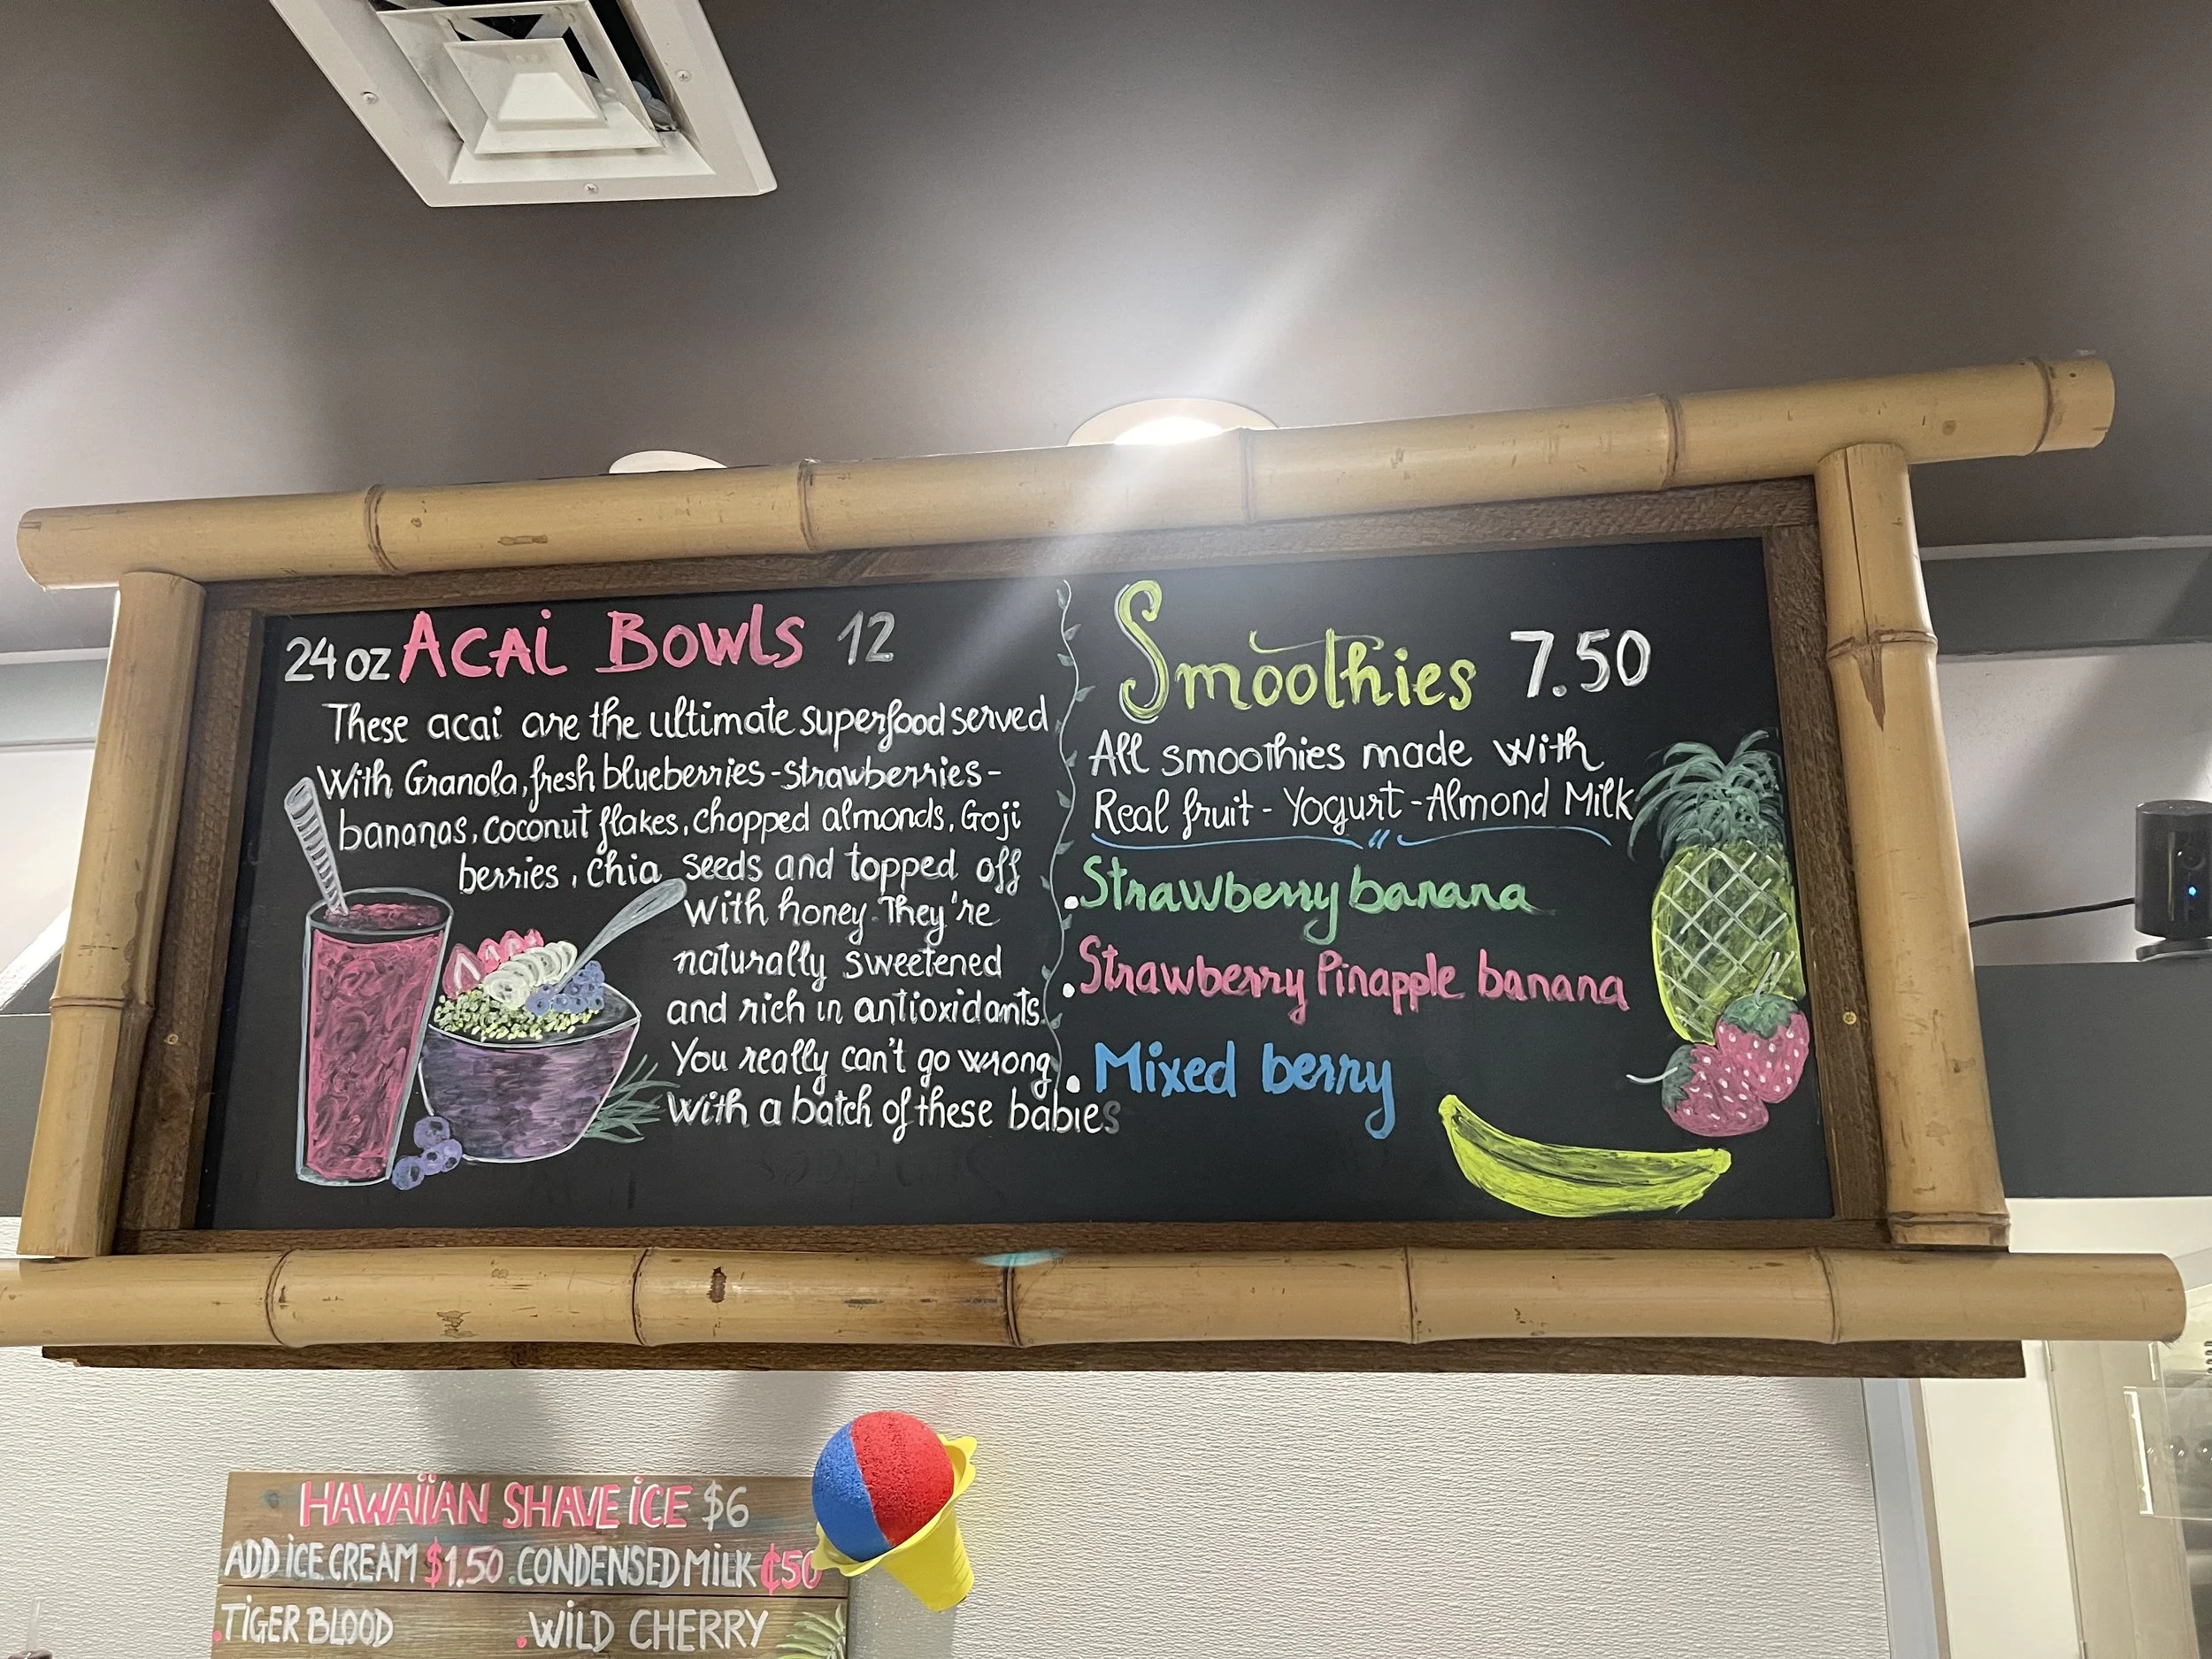 24 oz Acai Bowls 12
These acai are the ultimate superfood served
With Granola, fresh blueberries - strawberries -
bananas, coconut flakes, chopped almonds, Goji
berries, chia seeds and topped off
with honey. They're
naturally sweetened
and rich in antioxidants.
You really can't go wrong
with a batch of these babies
Smoothies 7.50
All smoothies made with
Real fruit - Yogurt - Almond Milk
. Strawberry banana
. Strawberry Pinapple banana
. Mixed berry
HAWAIIAN SHAVE ICE $6
ADD ICE CREAM $1.50 . CONDENSED MILK ¢50
. TIGER BLOOD
. WILD CHERRY